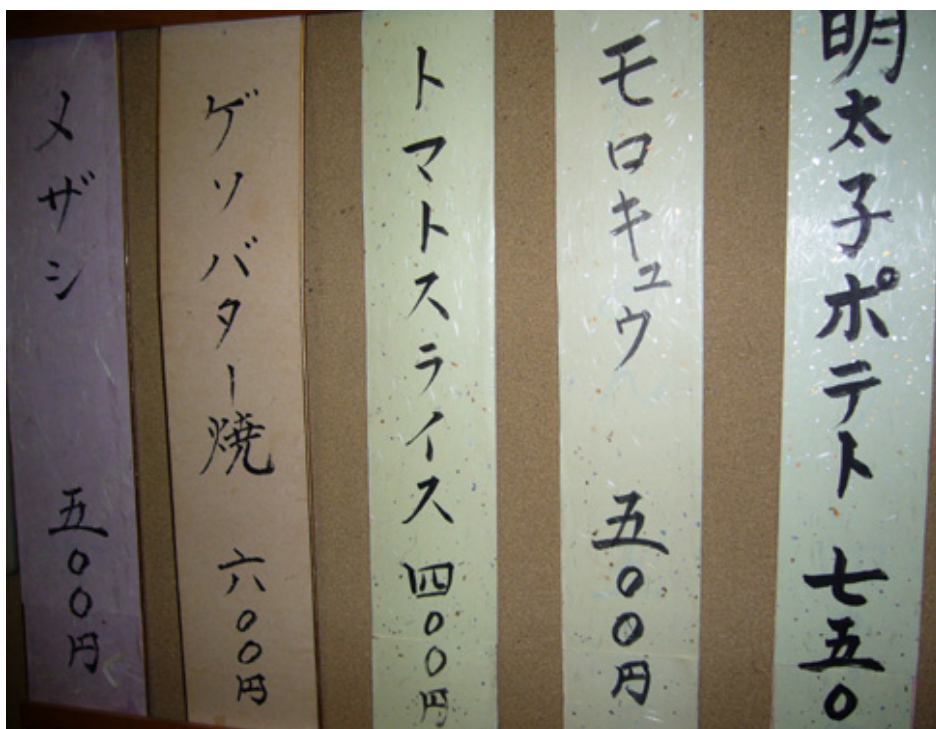 明太子ポテト 七五〇
モロキュウ 五〇〇円
トマトスライス 四〇〇円
ゲソバター焼 六〇〇円
メザシ 五〇〇円